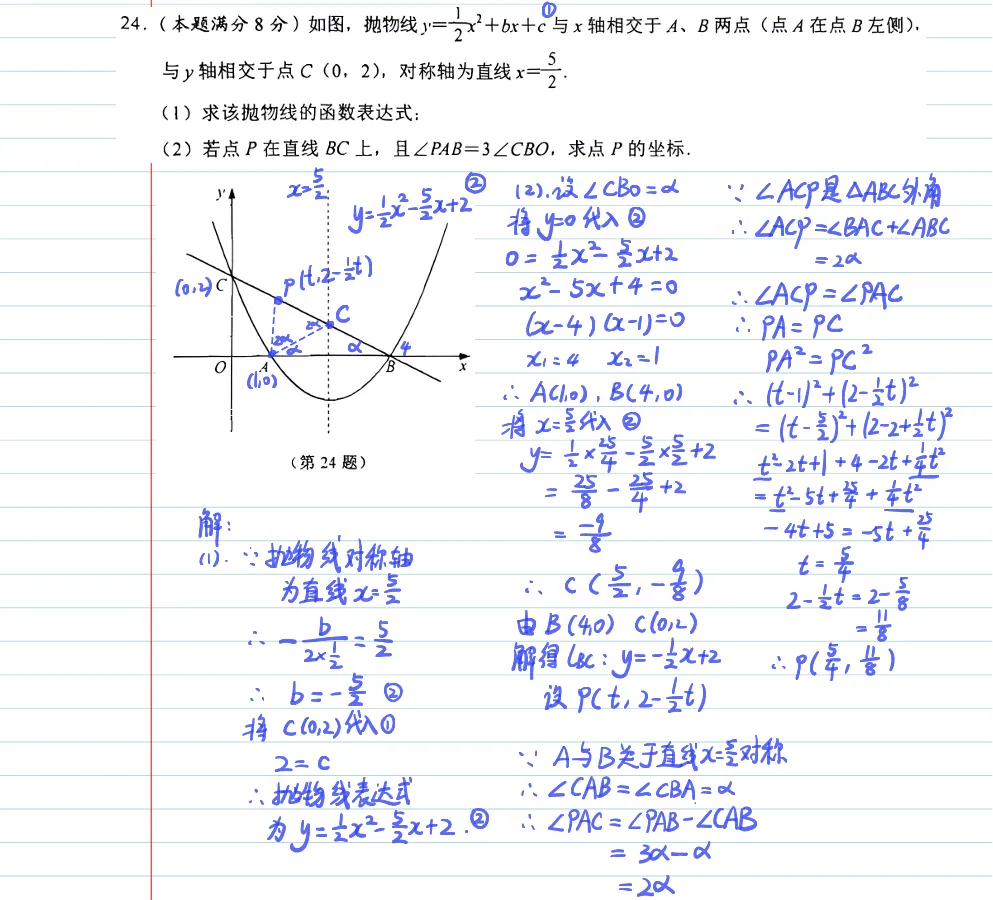 24.(本题满分8分)如图,抛物线y=\frac{1}{2}x²+bx+c①与x轴相交于A、B两点(点A在点B左侧),
与y轴相交于点C(0,2),对称轴为直线x=\frac{5}{2}.
(1)求该抛物线的函数表达式;
(2)若点P在直线BC上,且∠PAB=3∠CBO,求点P的坐标.
y
x=\frac{5}{2}
y=\frac{1}{2}x²-\frac{5}{2}x+2 ②
(0,2) C
P(t,2-\frac{1}{2}t)
C
2α
2α
α
α
4
O
A
B
x
(1,0)
(第24题)
解:
(1).∵抛物线对称轴
为直线x=\frac{5}{2}
∴-\frac{b}{2×\frac{1}{2}}=\frac{5}{2}
∴ b=-\frac{5}{2} ②
将C(0,2)代入①
2=c
∴抛物线表达式
为y=\frac{1}{2}x²-\frac{5}{2}x+2.②
(2).设∠CBO=α
将y=0代入②
0=\frac{1}{2}x²-\frac{5}{2}x+2
x²-5x+4=0
(x-4)(x-1)=0
x₁=4 x₂=1
∴A(1,0),B(4,0)
将x=\frac{5}{2}代入②
y=\frac{1}{2}×\frac{25}{4}-\frac{5}{2}×\frac{5}{2}+2
=\frac{25}{8}-\frac{25}{4}+2
=\frac{-9}{8}
∴C(\frac{5}{2},-\frac{9}{8})
由B(4,0) C(0,2)
解得l_{BC}:y=-\frac{1}{2}x+2
设P(t,2-\frac{1}{2}t)
∵A与B关于直线x=\frac{5}{2}对称
∴∠CAB=∠CBA=α
∴∠PAC=∠PAB-∠CAB
=3α-α
=2α
∵∠ACP是△ABC外角
∴∠ACP=∠BAC+∠ABC
=2α
∴∠ACP=∠PAC
∴PA=PC
PA²=PC²
∴(t-1)²+(2-\frac{1}{2}t)²
=(t-\frac{5}{2})²+(2-2+\frac{1}{2}t)²
t²-2t+1+4-2t+\frac{1}{4}t²
=t²-5t+\frac{25}{4}+\frac{1}{4}t²
-4t+5=-5t+\frac{25}{4}
t=\frac{5}{4}
2-\frac{1}{2}t=2-\frac{5}{8}
=\frac{11}{8}
∴P(\frac{5}{4},\frac{11}{8})